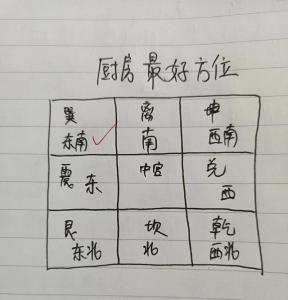 厨房最好方位
巽 离 坤
东南 南 西南
震东 中宫 兑
西
艮 坎 乾
东北 北 西北